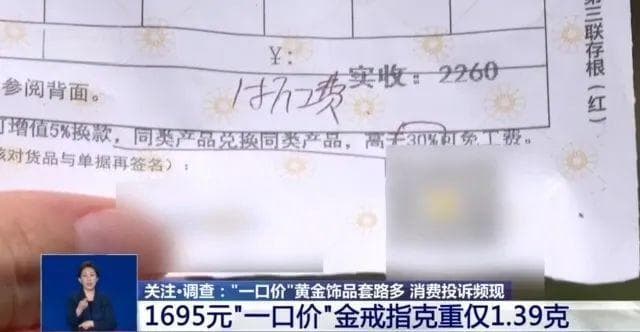 第三联存根(红)
¥:
实收:2260
参阅背面。
付工费
可增值5%换款,同类产品兑换同类产品,高于30%可免工费。
核对货品与单据再签名):
关注·调查:"一口价"黄金饰品套路多 消费投诉频现
1695元"一口价"金戒指克重仅1.39克